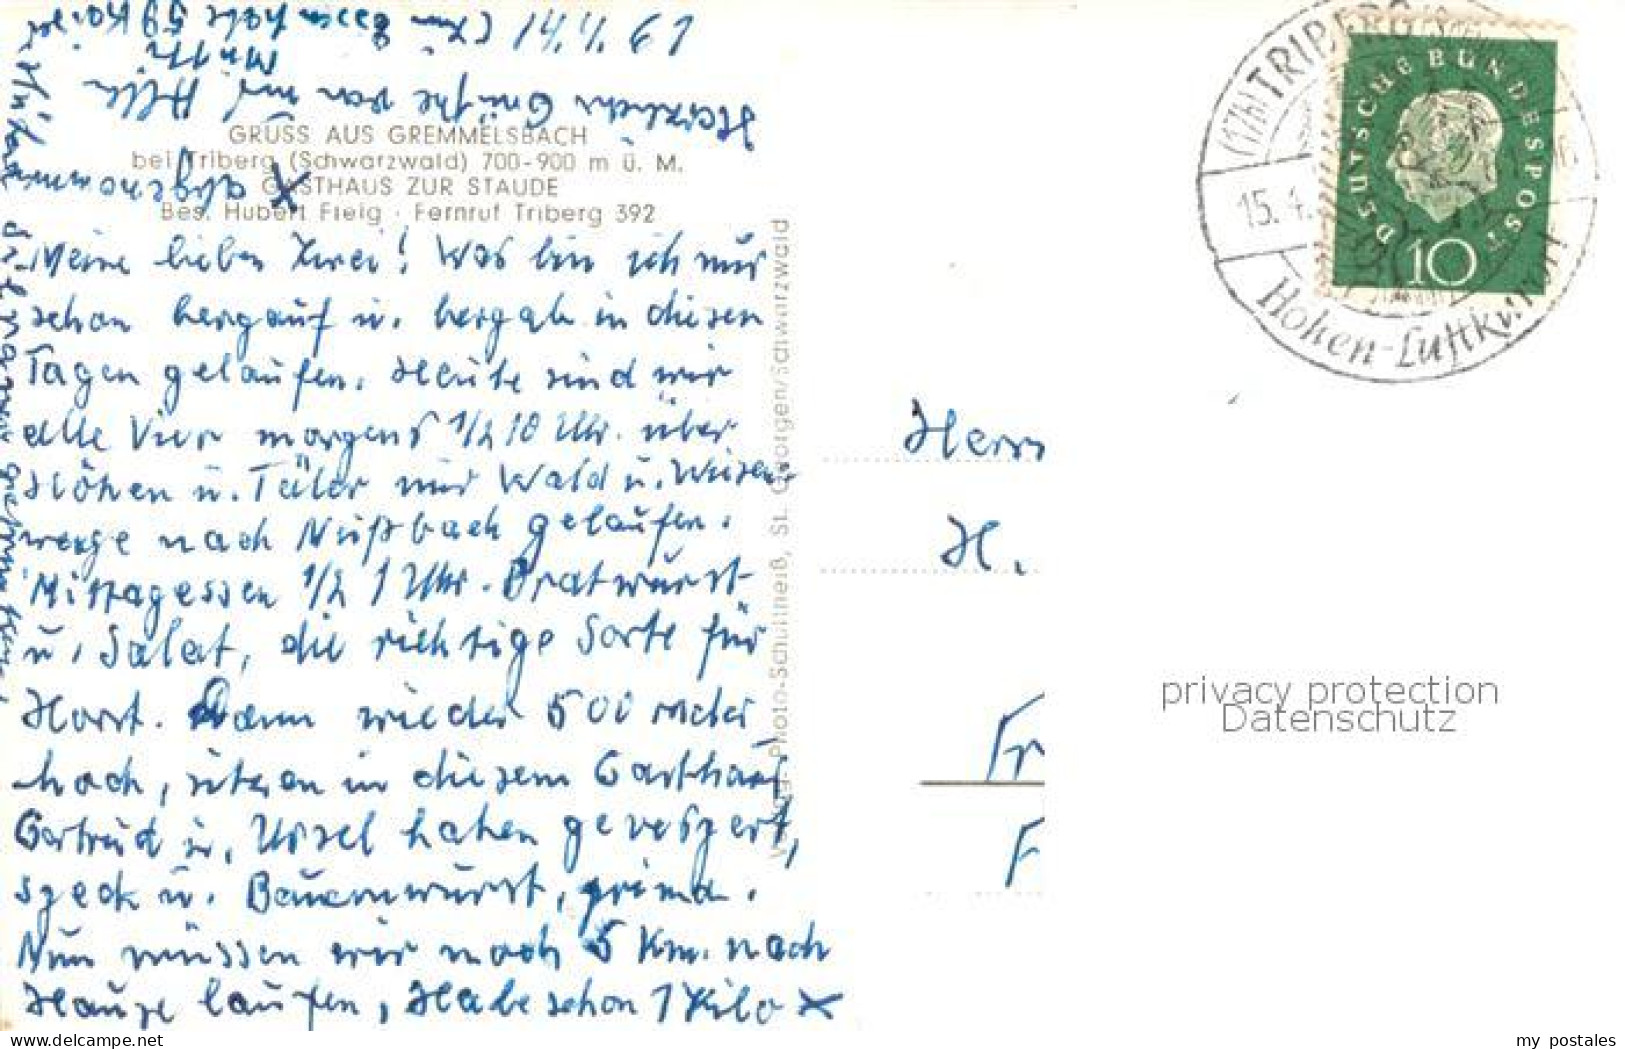 14.4.61
Herzliche Grüße von und
GRUSS AUS GREMMELSBACH
bei Triberg (Schwarzwald) 700-900 m ü. M.
GASTHAUS ZUR STAUDE
Bes. Hubert Fleig · Fernruf Triberg 392
Meine lieben Zwei! Was bin ich nur
schon bergauf u. bergab in diesen
Tagen gelaufen. Heute sind wir
alle Vier morgens 1/2 10 Uhr über
Höhen u. Täler nur Wald u. Wiesen-
wege nach Nußbach gelaufen.
Mittagessen 1/2 1 Uhr. Bratwurst
u. Salat, die richtige Sorte für
Horst. Dann wieder 500 meter
hoch, sitzen in diesem Gasthaus
Gertrud u. Ursel haben gevespert,
Speck u. Bauernwurst, prima.
Nun müssen wir noch 5 Km. nach
Hause laufen, Habe schon 1 Kilo x
x abgenommen
Photo-Schultheiß, St. Georgen/Schwarzwald
(17b) TRIBERG
15. 4.
Höhen-Luftkurort
DEUTSCHE BUNDESPOST
10
Herrn
H.
Fr
F
privacy protection
Datenschutz
www.delcampe.net
my_postales